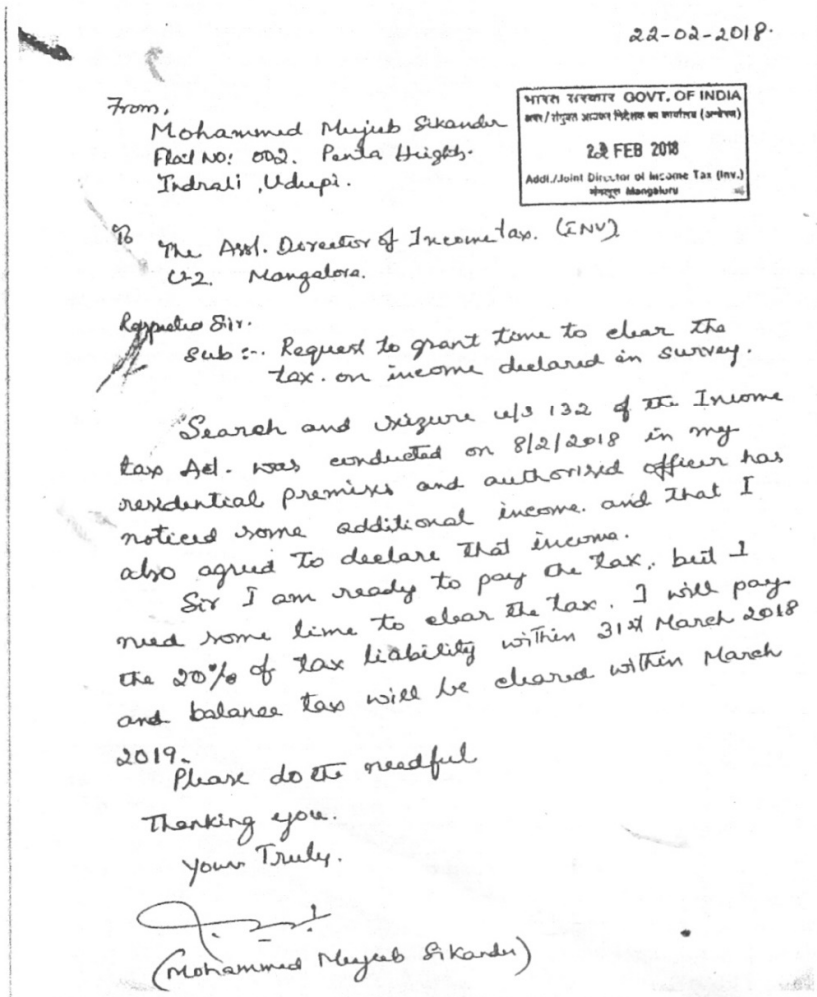 22-02-2018.
From,
Mohammed Mujeeb Sikander
Flat No: 002. Penta Heights.
Indrali, Udupi.
भारत सरकार GOVT. OF INDIA
अपर/संयुक्त आयकर निदेशक का कार्यालय (अन्वेषण)
22 FEB 2018
Addl./Joint Director of Income Tax (Inv.)
मंगलूरु Mangaluru
To
The Asst. Director of Income tax. (INV)
U-2. Mangalore.
Respected Sir.
Sub :-. Request to grant time to clear the
tax. on income declared in survey.
Search and seizure u/s 132 of the Income
tax Act. was conducted on 8/2/2018 in my
residential premises and authorised officer has
noticed some additional income. and that I
also agreed to declare that income.
Sir I am ready to pay the tax, but I
need some time to clear the tax. I will pay
the 20% of tax liability within 31st March 2018
and balance tax will be cleared within March
2019.
Please do the needful
Thanking you.
Yours Truly.
(Mohammed Mujeeb Sikander)